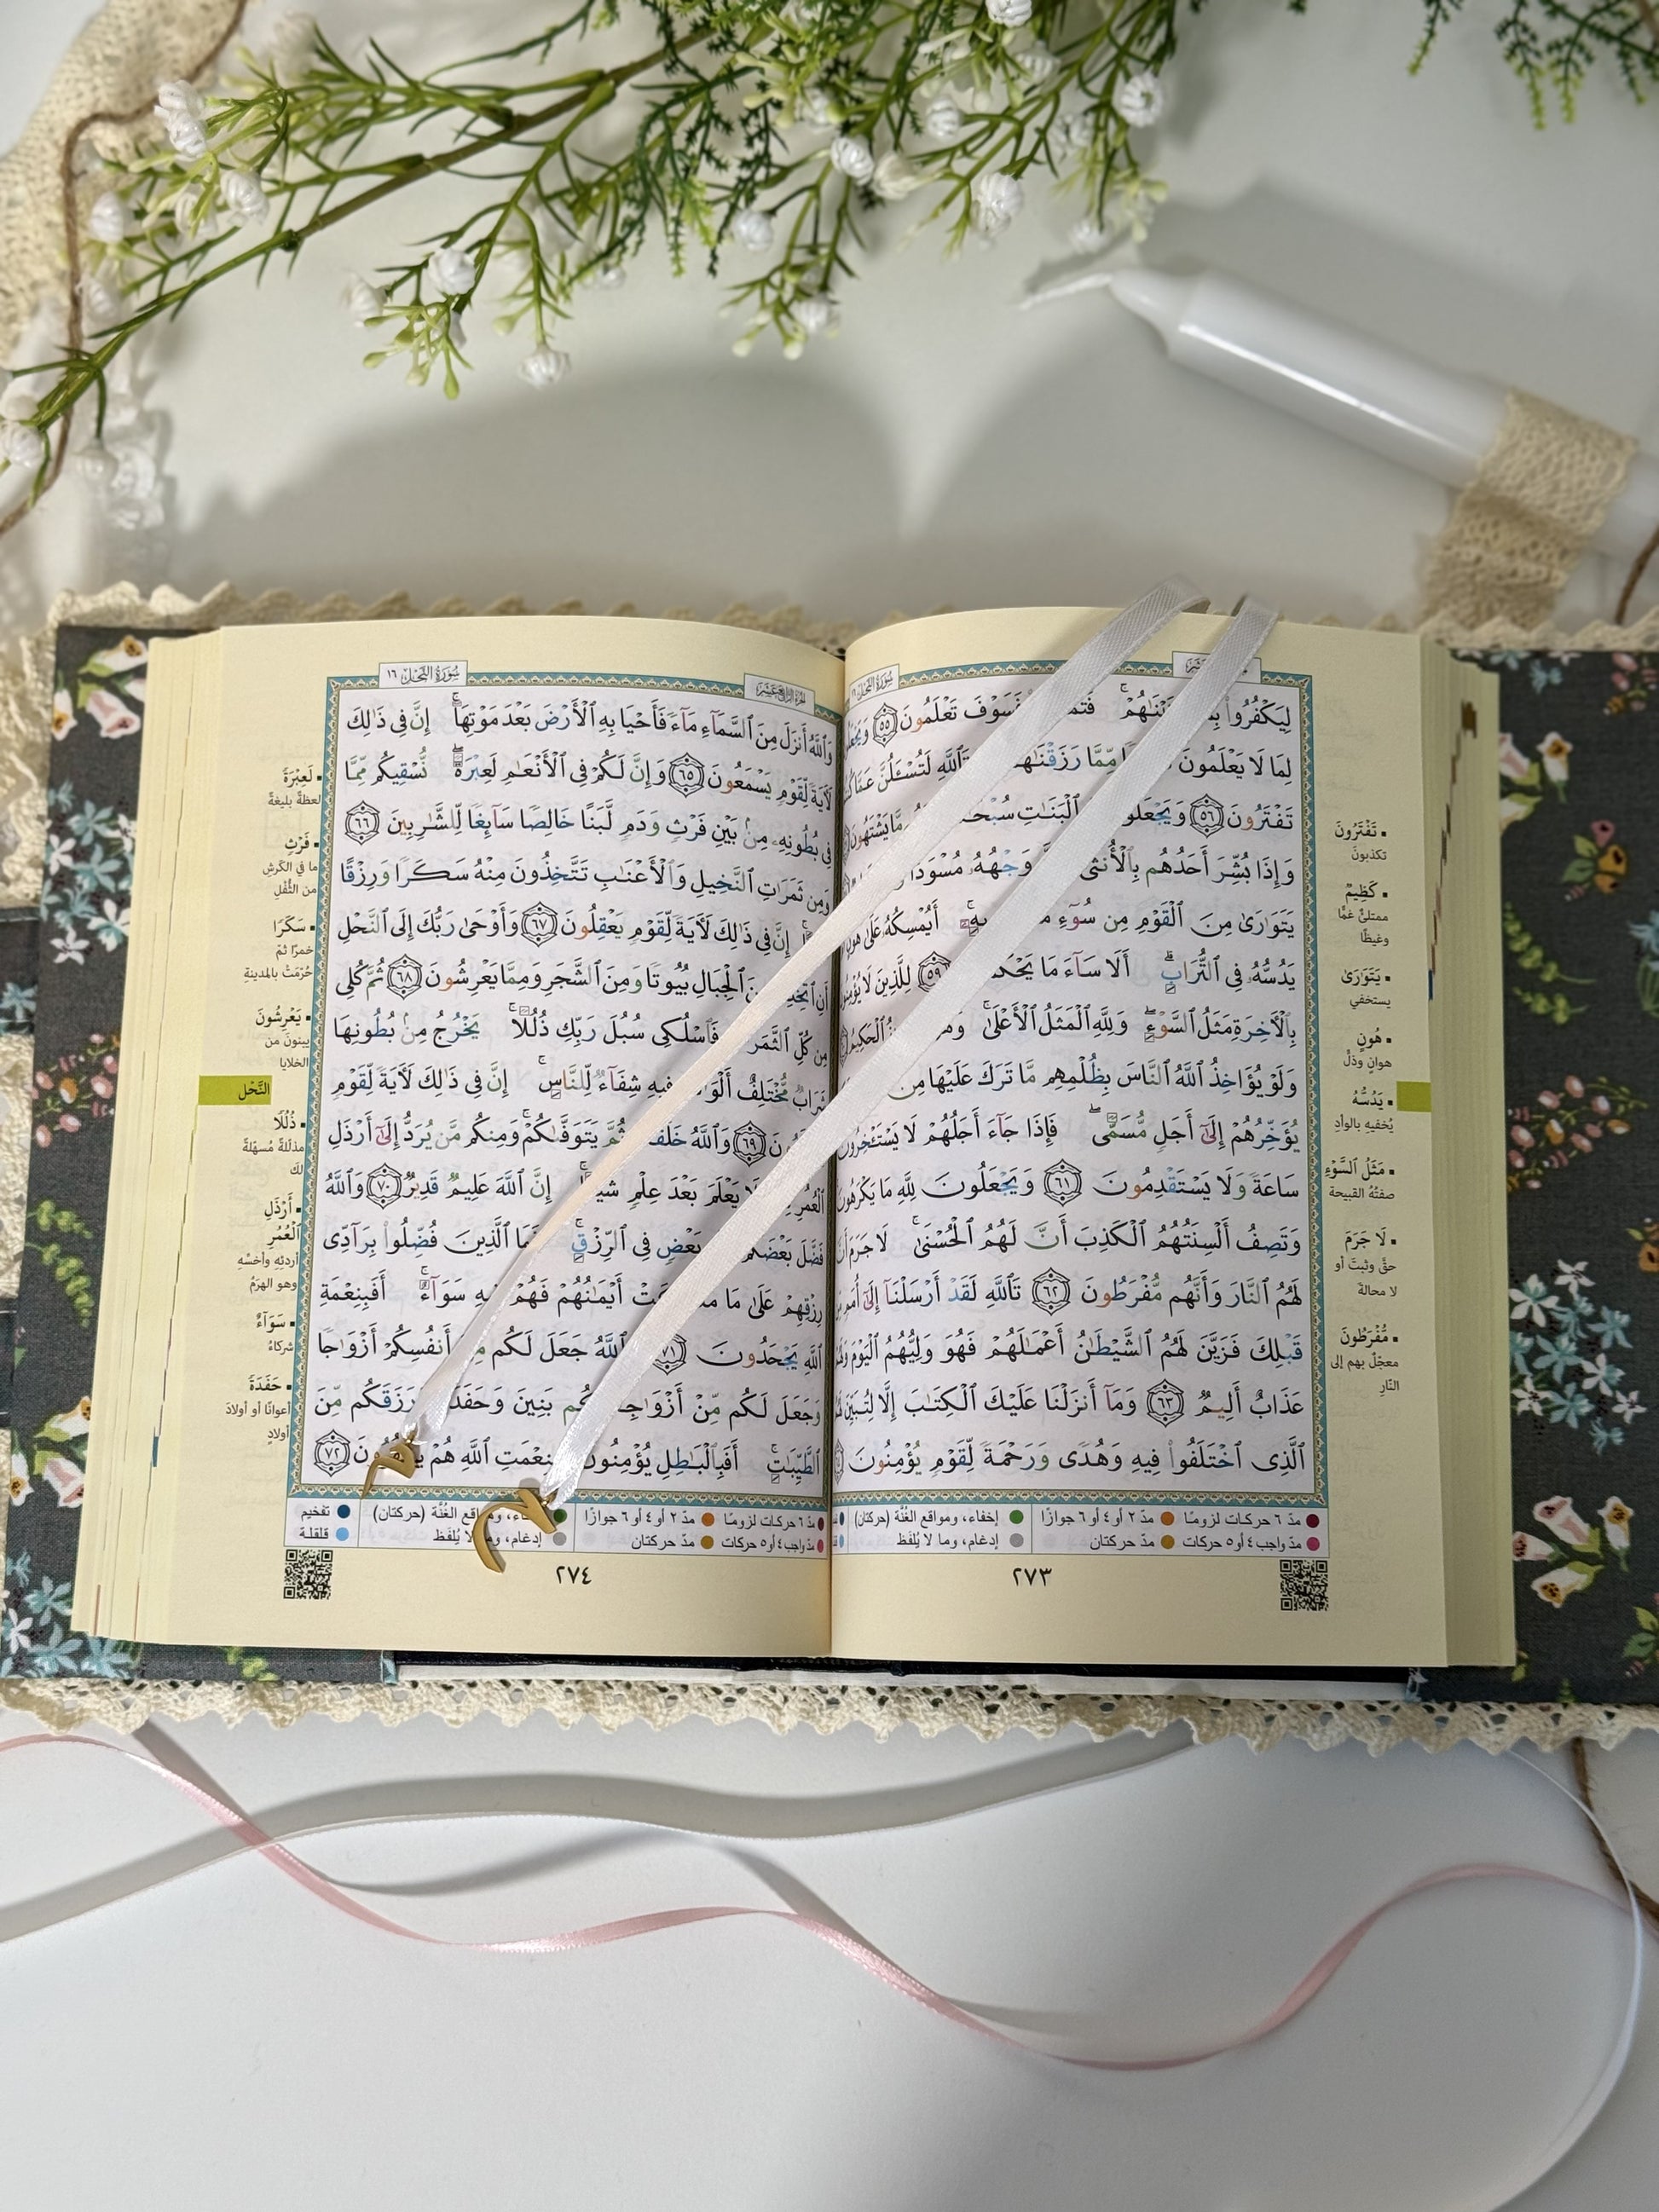 سُورَةُ النَّحْل
لِيَكْفُرُوا۟ فَسَوْفَ تَعْلَمُونَ ٥٥
لِمَا لَا يَعْلَمُونَ مِّمَّا رَزَقْنَٰهُمْ لَتُسْـَٔلُنَّ عَمَّا
تَفْتَرُونَ ٥٦ وَيَجْعَلُونَ ٱلْبَنَٰتِ مَّا يَشْتَهُونَ
وَإِذَا بُشِّرَ أَحَدُهُم بِٱلْأُنثَىٰ وَجْهُهُۥ مُسْوَدًّا
يَتَوَٰرَىٰ مِنَ ٱلْقَوْمِ مِن سُوٓءِ بِهِۦٓ ۚ أَيُمْسِكُهُۥ عَلَىٰ هُونٍ
يَدُسُّهُۥ فِى ٱلتُّرَابِ ۗ أَلَا سَآءَ مَا ٥٩ لِلَّذِينَ لَا
بِٱلْـَٔاخِرَةِ مَثَلُ ٱلسَّوْءِ ۖ وَلِلَّهِ ٱلْمَثَلُ ٱلْأَعْلَىٰ ۚ ٱلْحَكِيمُ
وَلَوْ يُؤَاخِذُ ٱللَّهُ ٱلنَّاسَ بِظُلْمِهِم مَّا تَرَكَ عَلَيْهَا مِن
يُؤَخِّرُهُمْ إِلَىٰٓ أَجَلٍ مُّسَمًّى ۖ فَإِذَا جَآءَ أَجَلُهُمْ لَا يَسْتَـْٔخِرُونَ
سَاعَةً وَلَا يَسْتَقْدِمُونَ ٦١ وَيَجْعَلُونَ لِلَّهِ مَا يَكْرَهُونَ
وَتَصِفُ أَلْسِنَتُهُمُ ٱلْكَذِبَ أَنَّ لَهُمُ ٱلْحُسْنَىٰ ۖ لَا جَرَمَ أَنَّ
لَهُمُ ٱلنَّارَ وَأَنَّهُم مُّفْرَطُونَ ٦٢ تَٱللَّهِ لَقَدْ أَرْسَلْنَآ إِلَىٰٓ
قَبْلِكَ فَزَيَّنَ لَهُمُ ٱلشَّيْطَٰنُ أَعْمَٰلَهُمْ فَهُوَ وَلِيُّهُمُ ٱلْيَوْمَ
عَذَابٌ أَلِيمٌ ٦٣ وَمَآ أَنزَلْنَا عَلَيْكَ ٱلْكِتَٰبَ إِلَّا لِتُبَيِّنَ
ٱلَّذِى ٱخْتَلَفُوا۟ فِيهِ ۙ وَهُدًى وَرَحْمَةً لِّقَوْمٍ يُؤْمِنُونَ
تَفْتَرُونَ
تكذبون
كَظِيمٌ
ممتلئٌ غمًّا
وغيظًا
يَتَوَٰرَىٰ
يستخفي
هُونٍ
هوانٍ وذلٍّ
يَدُسُّهُ
يُخفيهِ بالوأدِ
مَثَلُ ٱلسَّوْءِ
صفتُهُ القبيحة
لَا جَرَمَ
حقَّ وثبتَ أو
لا محالة
مُّفْرَطُونَ
معجّلٌ بهم إلى
النّار
مدّ ٦ حركات لزومًا مدّ ٢ أو ٤ أو ٦ جوازًا إخفاء، ومواقع الغُنَّة (حركتان)
مدّ واجب ٤ أو ٥ حركات مدّ حركتان إدغام، وما لا يُلفَظ
٢٧٣
الجزء الرابع عشر
سُورَةُ النَّحْل ١٦
وَٱللَّهُ أَنزَلَ مِنَ ٱلسَّمَآءِ مَآءً فَأَحْيَا بِهِ ٱلْأَرْضَ بَعْدَ مَوْتِهَآ ۚ إِنَّ فِى ذَٰلِكَ
لَـَٔايَةً لِّقَوْمٍ يَسْمَعُونَ ٦٥ وَإِنَّ لَكُمْ فِى ٱلْأَنْعَٰمِ لَعِبْرَةً ۖ نُّسْقِيكُم مِّمَّا
فِى بُطُونِهِۦ مِنۢ بَيْنِ فَرْثٍ وَدَمٍ لَّبَنًا خَالِصًا سَآئِغًا لِّلشَّٰرِبِينَ ٦٦
وَمِن ثَمَرَٰتِ ٱلنَّخِيلِ وَٱلْأَعْنَٰبِ تَتَّخِذُونَ مِنْهُ سَكَرًا وَرِزْقًا
إِنَّ فِى ذَٰلِكَ لَـَٔايَةً لِّقَوْمٍ يَعْقِلُونَ ٦٧ وَأَوْحَىٰ رَبُّكَ إِلَى ٱلنَّحْلِ
أَنِ ٱتَّخِذِى مِنَ ٱلْجِبَالِ بُيُوتًا وَمِنَ ٱلشَّجَرِ وَمِمَّا يَعْرِشُونَ ٦٨ ثُمَّ كُلِى
مِن كُلِّ ٱلثَّمَرَٰتِ فَٱسْلُكِى سُبُلَ رَبِّكِ ذُلُلًا ۚ يَخْرُجُ مِنۢ بُطُونِهَا
شَرَابٌ مُّخْتَلِفٌ أَلْوَٰنُهُۥ فِيهِ شِفَآءٌ لِّلنَّاسِ ۗ إِنَّ فِى ذَٰلِكَ لَـَٔايَةً لِّقَوْمٍ
٦٩ وَٱللَّهُ خَلَقَكُمْ ثُمَّ يَتَوَفَّىٰكُمْ ۚ وَمِنكُم مَّن يُرَدُّ إِلَىٰٓ أَرْذَلِ
ٱلْعُمُرِ لَا يَعْلَمَ بَعْدَ عِلْمٍ شَيْـًٔا ۚ إِنَّ ٱللَّهَ عَلِيمٌ قَدِيرٌ ٧٠ وَٱللَّهُ
فَضَّلَ بَعْضَكُمْ بَعْضٍ فِى ٱلرِّزْقِ ۚ فَمَا ٱلَّذِينَ فُضِّلُوا۟ بِرَآدِّى
رِزْقِهِمْ عَلَىٰ مَا مَلَكَتْ أَيْمَٰنُهُمْ فَهُمْ فِيهِ سَوَآءٌ ۚ أَفَبِنِعْمَةِ
ٱللَّهِ يَجْحَدُونَ ٧١ وَٱللَّهُ جَعَلَ لَكُم مِّنْ أَنفُسِكُمْ أَزْوَٰجًا
وَجَعَلَ لَكُم مِّنْ أَزْوَٰجِكُم بَنِينَ وَحَفَدَةً وَرَزَقَكُم مِّنَ
ٱلطَّيِّبَٰتِ ۚ أَفَبِٱلْبَٰطِلِ يُؤْمِنُونَ وَبِنِعْمَتِ ٱللَّهِ هُمْ يَكْفُرُونَ ٧٢
لَعِبْرَةً
لعظةً بليغةً
فَرْثٍ
ما في الكَرِشِ
من الثُّفْلِ
سَكَرًا
خمرًا ثمّ
حُرّمَتْ بالمدينةِ
يَعْرِشُونَ
يبنونَ من
الخلايا
النَّحْل
ذُلُلًا
مذلّلةً مُسهّلةً
لك
أَرْذَلِ
ٱلْعُمُرِ
أردئهِ وأخسّهِ
وهو الهرَمُ
سَوَآءٌ
شركاءُ
حَفَدَةً
أعوانًا أو أولادَ
أولادٍ
مدّ ٦ حركات لزومًا مدّ ٢ أو ٤ أو ٦ جوازًا إخفاء، ومواقع الغُنَّة (حركتان) تفخيم
مدّ واجب ٤ أو ٥ حركات مدّ حركتان إدغام، وما لا يُلفَظ قلقلة
٢٧٤